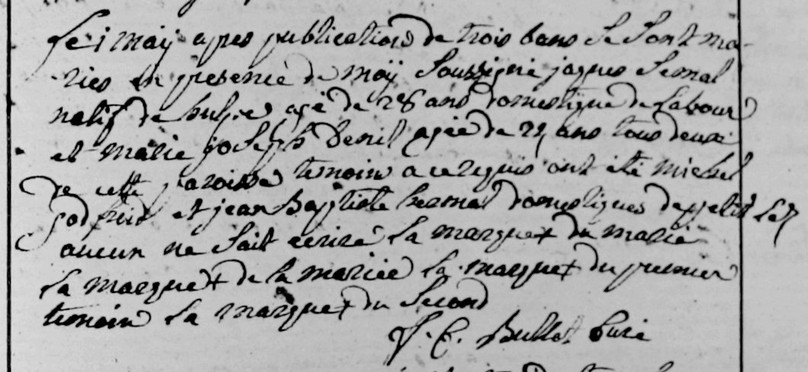 Le 1 may apres publications de trois bans se sont ma-
riés en presence de moÿ soussigné jaques Semal
natif de agé de 28 ans domestique de Labour
et marie joseph agée de 25 ans tous deux
de cette paroisse temoin a ce requis ont été michel
godfrid et jean Baptiste domestiques
aucun ne sait ecrire la marque + du marié
la marque + de la mariée la marque + du premier
temoin la marque + du second
F. C. Bullot Curé